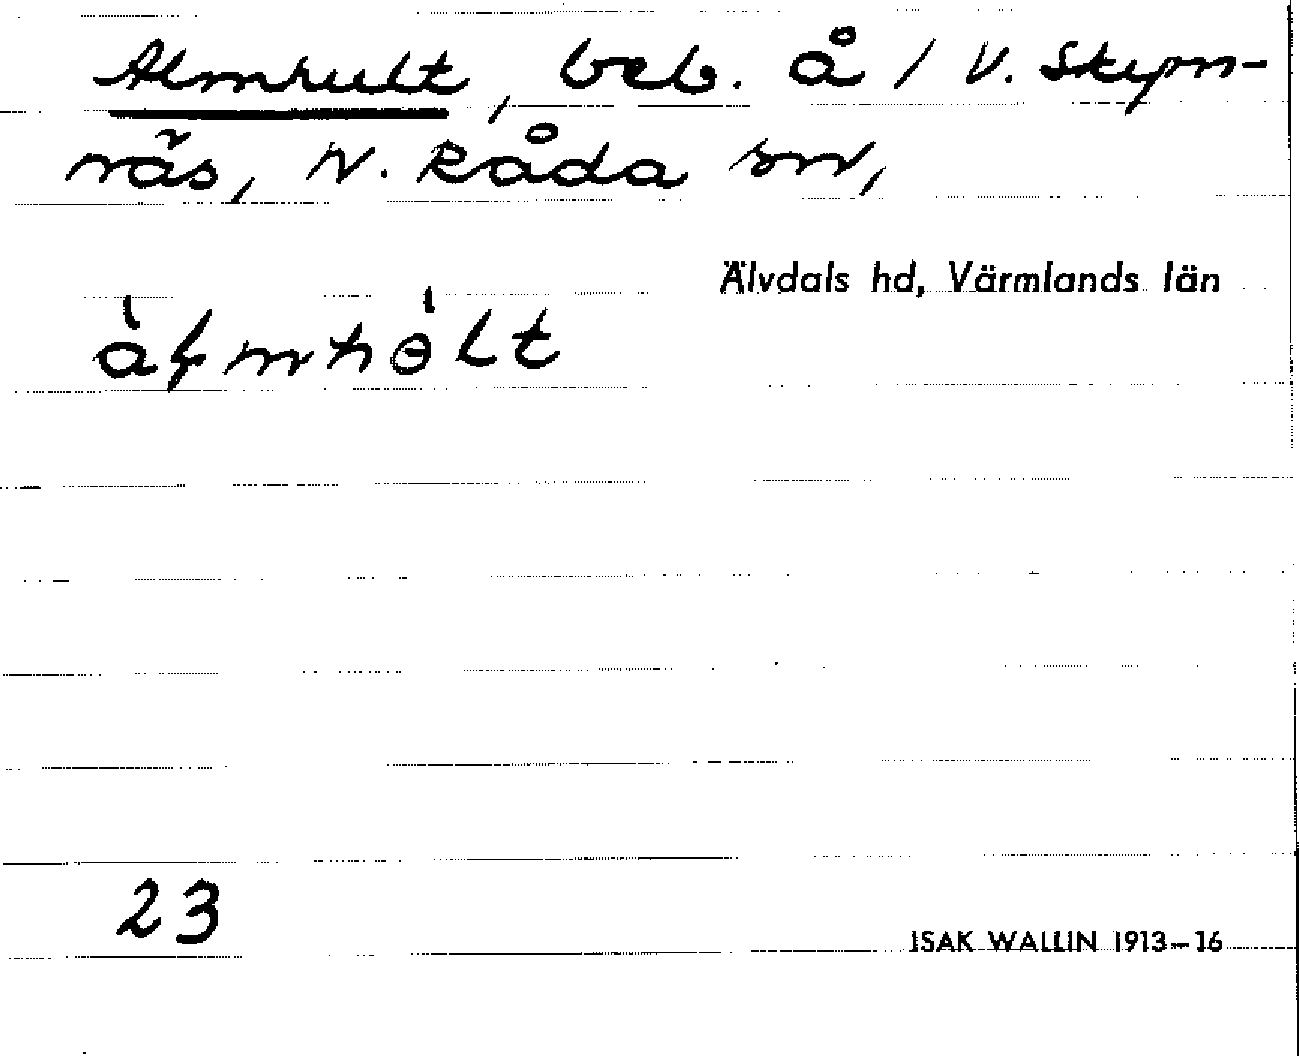 Almhult, beb. å / V. Skym-
näs, N. Råda sn,
Älvdals hd, Värmlands län
àⱡmhɵ̀lt
23
ISAK WALLIN 1913–16